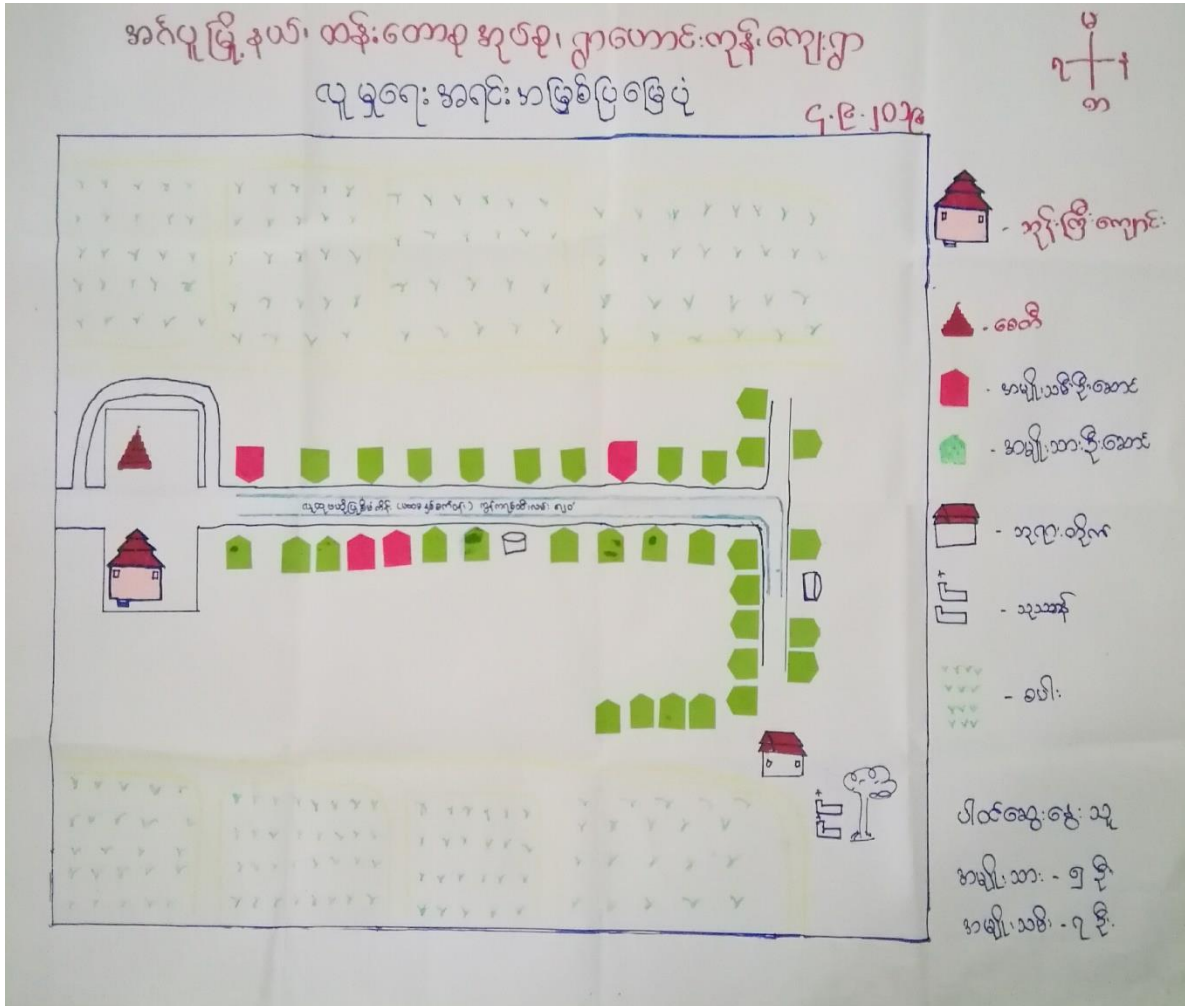 အင်္ဂပူမြို့နယ်၊ ထန်းတောစုအုပ်စု၊ ရွာဟောင်းကုန်းကျေးရွာ
လူမှုရေးအရင်းအမြစ်ပြမြေပုံ
၄.၉.၂၀၁၉
မ
ရ န
တ
- ဘုန်းကြီးကျောင်း
- စေတီ
- အမျိုးသမီးဦးဆောင်
- အမျိုးသားဦးဆောင်
- ဘုရားတိုက်
- သုသာန်
- စပါး
ပါဝင်ဆွေးနွေးသူ
အမျိုးသား - ၅ ဦး
အမျိုးသမီး - ၇ ဦး